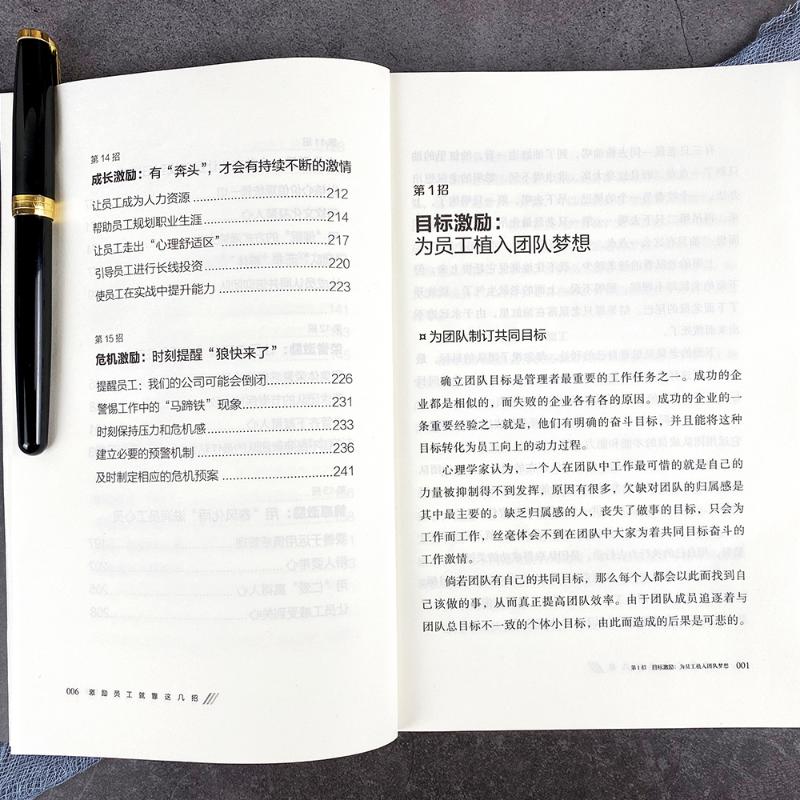 第14招
成长激励：有“奔头”，才会有持续不断的激情
让员工成为人力资源 212
帮助员工规划职业生涯 214
让员工走出“心理舒适区” 217
引导员工进行长线投资 220
使员工在实战中提升能力 223
第15招
危机激励：时刻提醒“狼快来了”
提醒员工：我们的公司可能会倒闭 226
警惕工作中的“马蹄铁”现象 231
时刻保持压力和危机感 233
建立必要的预警机制 236
及时制定相应的危机预案 241
006 激励员工就靠这几招
第1招
目标激励：
为员工植入团队梦想
¤为团队制订共同目标
确立团队目标是管理者最重要的工作任务之一。成功的企
业都是相似的，而失败的企业各有各的原因。成功的企业的一
条重要经验之一就是，他们有明确的奋斗目标，并且能将这种
目标转化为员工向上的动力过程。
心理学家认为，一个人在团队中工作最可惜的就是自己的
力量被抑制得不到发挥，原因有很多，欠缺对团队的归属感是
其中最主要的。缺乏归属感的人，丧失了做事的目标，只会为
工作而工作，丝毫体会不到在团队中大家为着共同目标奋斗的
工作激情。
倘若团队有自己的共同目标，那么每个人都会以此而找到自
己该做的事，从而真正提高团队效率。由于团队成员追逐着与
团队总目标不一致的个体小目标，由此而造成的后果是可悲的。
第1招 目标激励：为员工植入团队梦想 001